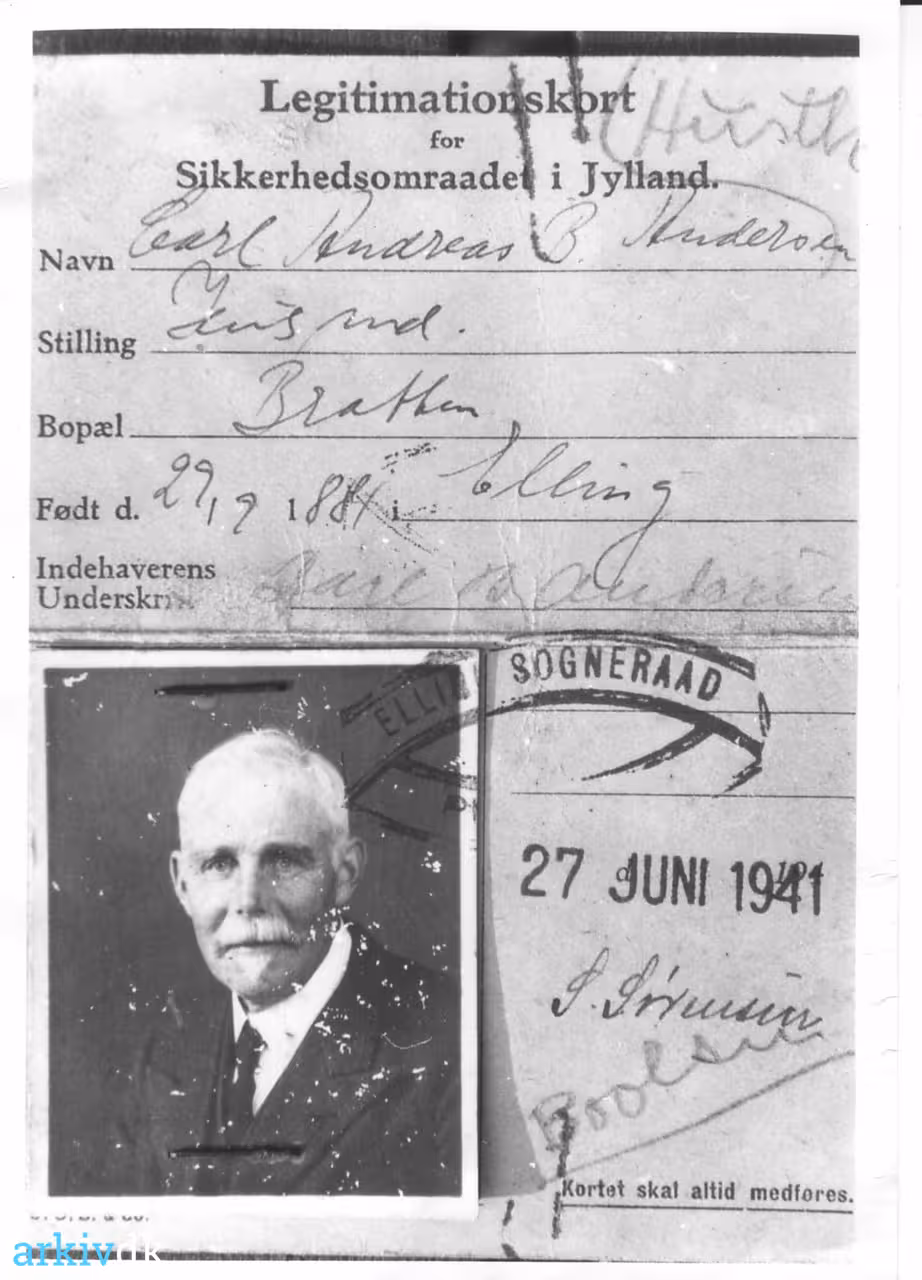 Legitimationskort
for
Sikkerhedsomraadet i Jylland.
Navn Carl Andreas B. Andersen
Stilling Husmd.
Bopæl Bratten
Født d. 29/9 1884 i Elling
Indehaverens
Underskr
Carl B Andersen
ELLIN SOGNERAAD
27 JUNI 1941
S. Sørensen
Boolsen
Kortet skal altid medføres.
arkiv.dk